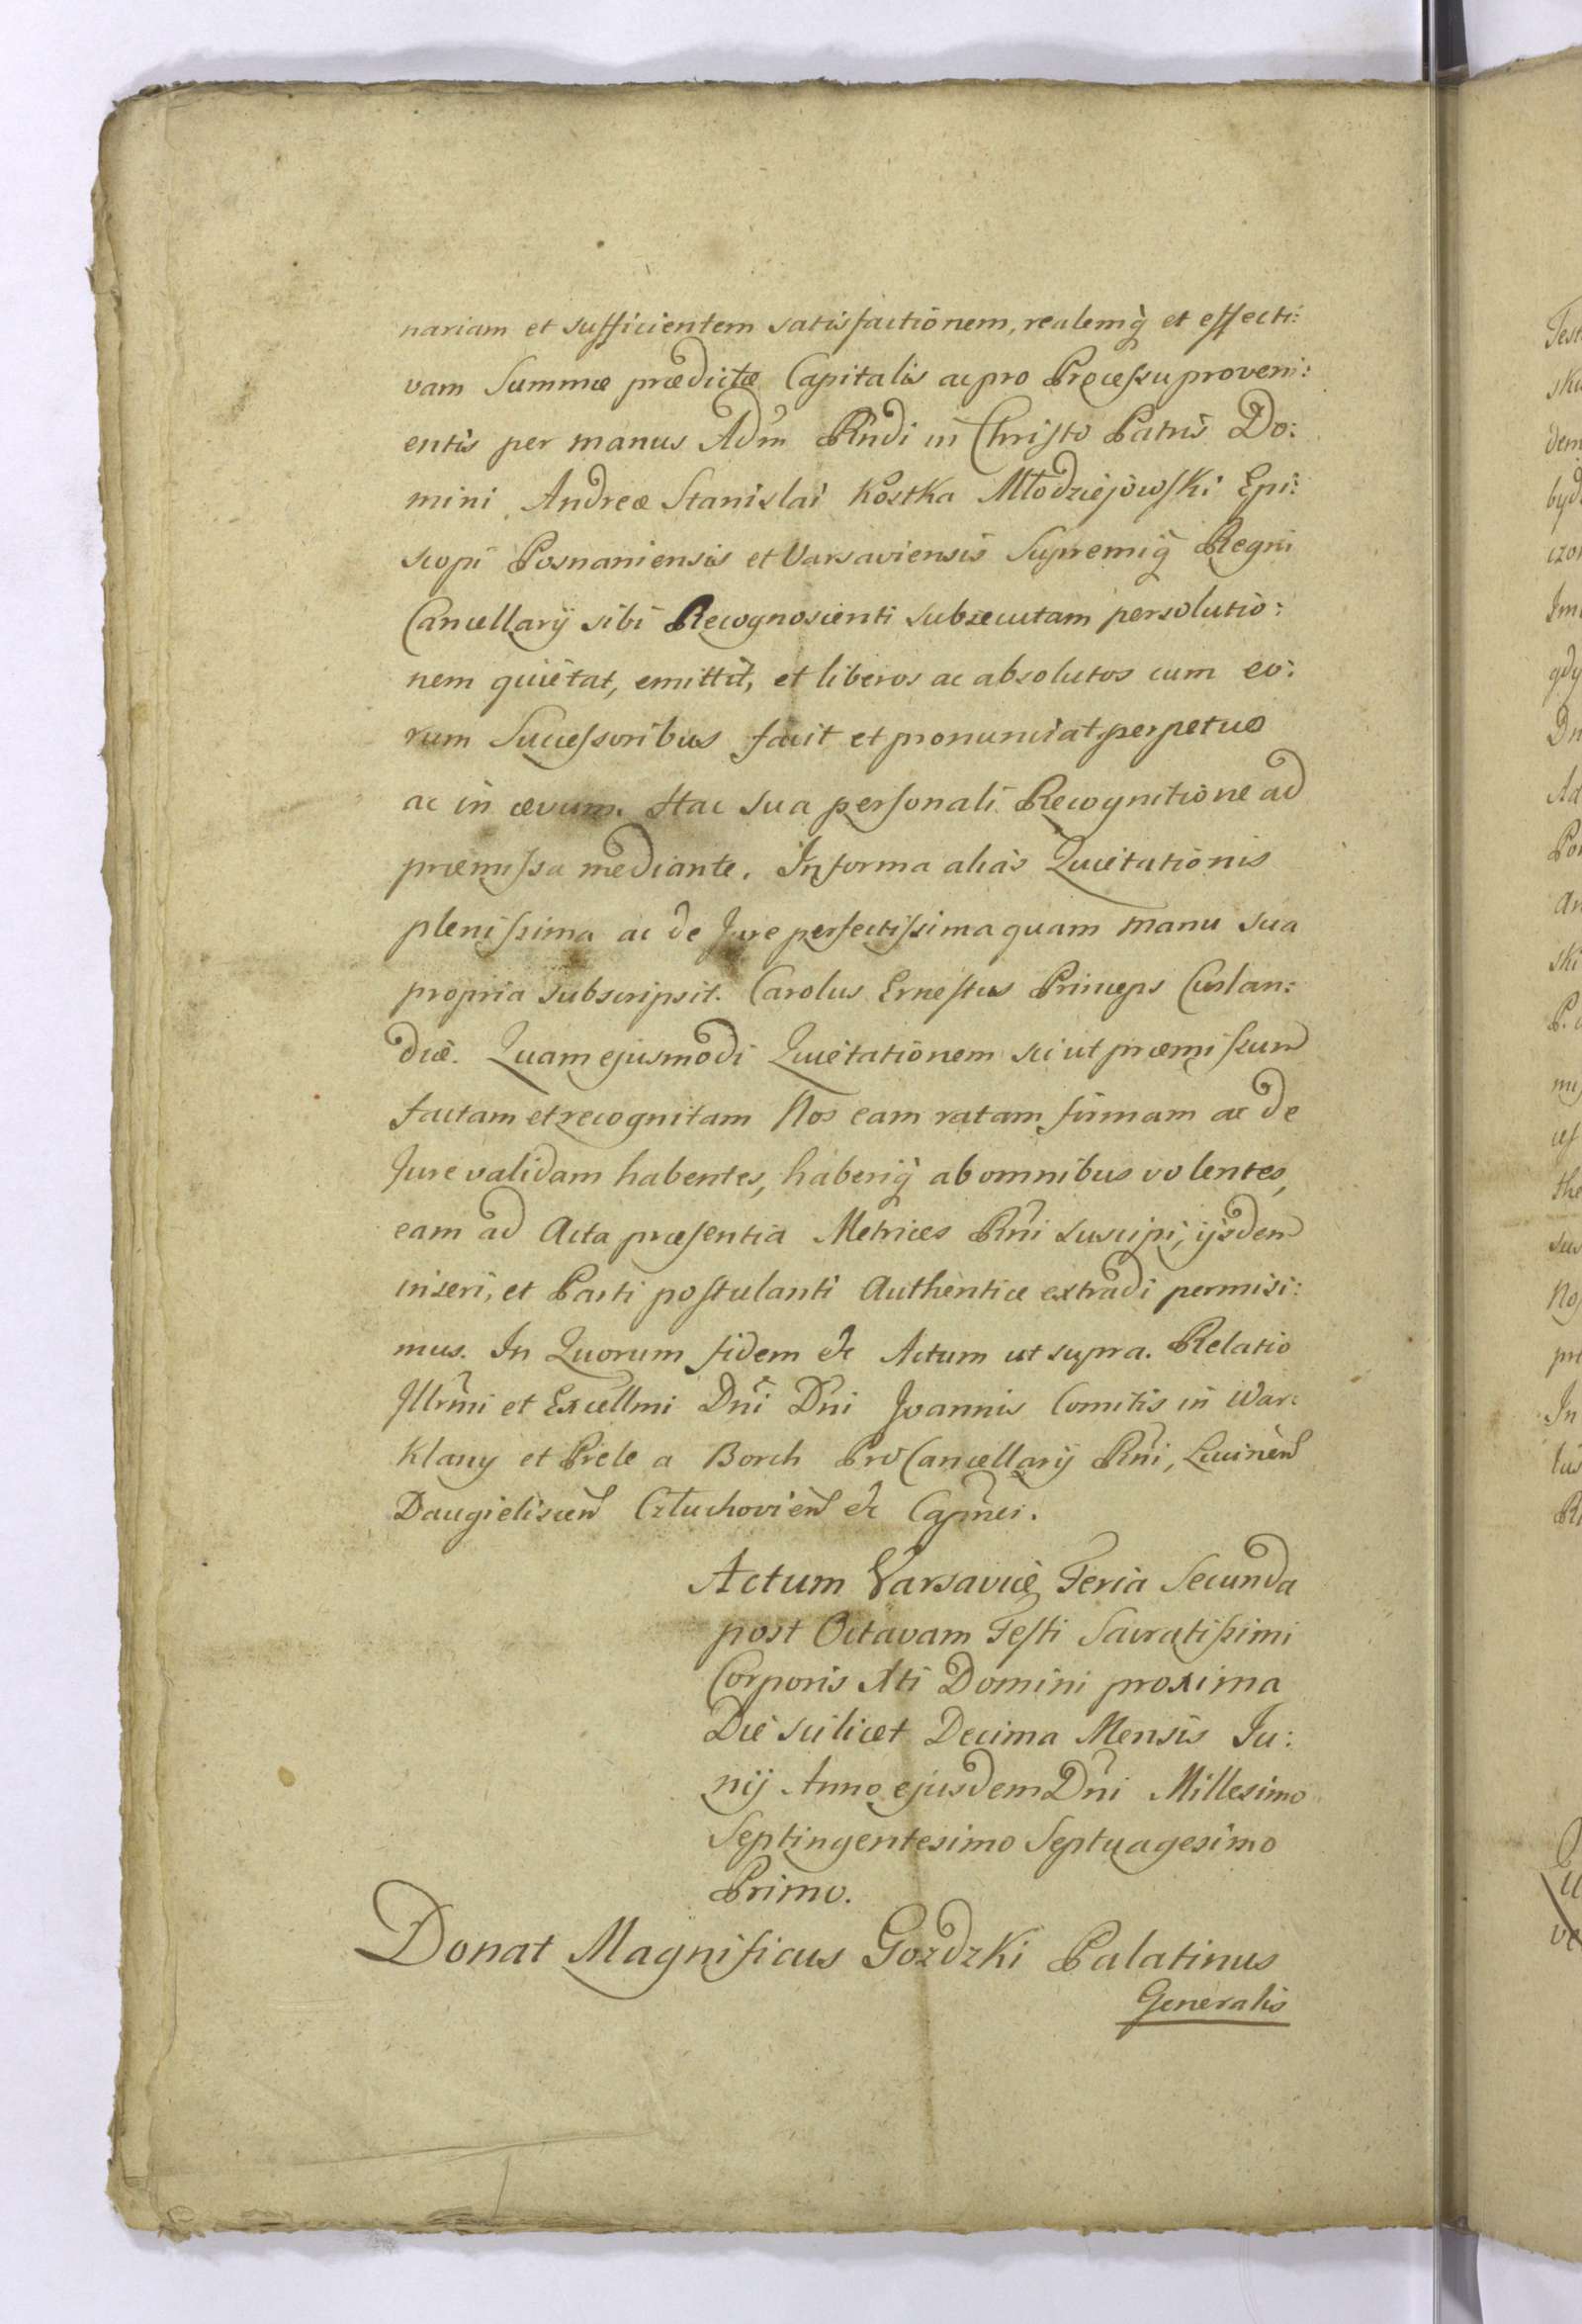 nariam et sufficientem satisfactionem, realemq̀ et effecti:
vam Summæ prædictæ Capitalis ac pro Processu proveni:
entis per manus Adm̃ Rñdi in Christo Patris Do:
mini Andreæ Stanislai Kostka Młodziejowski Epi:
scopi Posnaniensis et Varsaviensis Supremiq̀ Regni
Cancellarij sibi Recognoscenti subsecutam persolutio:
nem quietat, emittit, et liberos ac absolutos cum eo:
rum Successoribus facit et pronunciat perpetuo
ac in ævum. Hac sua personali Recognitione ad
præmissa mediante. In forma aliàs Quietationis
plenissima ac de Jure perfectissima quam manu sua
propria subscripsit. Carolus Ernestus Princeps Curlan:
diæ. Quam ejusmodi Quietationem sicut præmissum
factam et recognitam Nos eam ratam firmam ac de
Jure validam habentes, haberiq̀ ab omnibus volentes,
eam ad Acta præsentia Metrices Rñi suscipi, ijsdem
inseri, et Parti postulanti Authentice extradi permisi:
mus. In Quorum fidem &c Actum ut supra. Relatio
Illrmi et Excellmi Dñi Dñi Joannis Comitis in War:
klany et Prele a Borch ProCancellarij Rñi, Lucinen
Daugieliscen Człuchovien &c Capnei.
Actum Varsaviæ Feria Secunda
post Octavam Festi Sacratissimi
Corporis Xti Domini proxima
Die scilicet Decima Mensis Ju:
nij Anno ejusdem Dñi Millesimo
Septingentesimo Septuagesimo
Primo.
Donat Magnificus Gozdzki Palatinus
Generalis